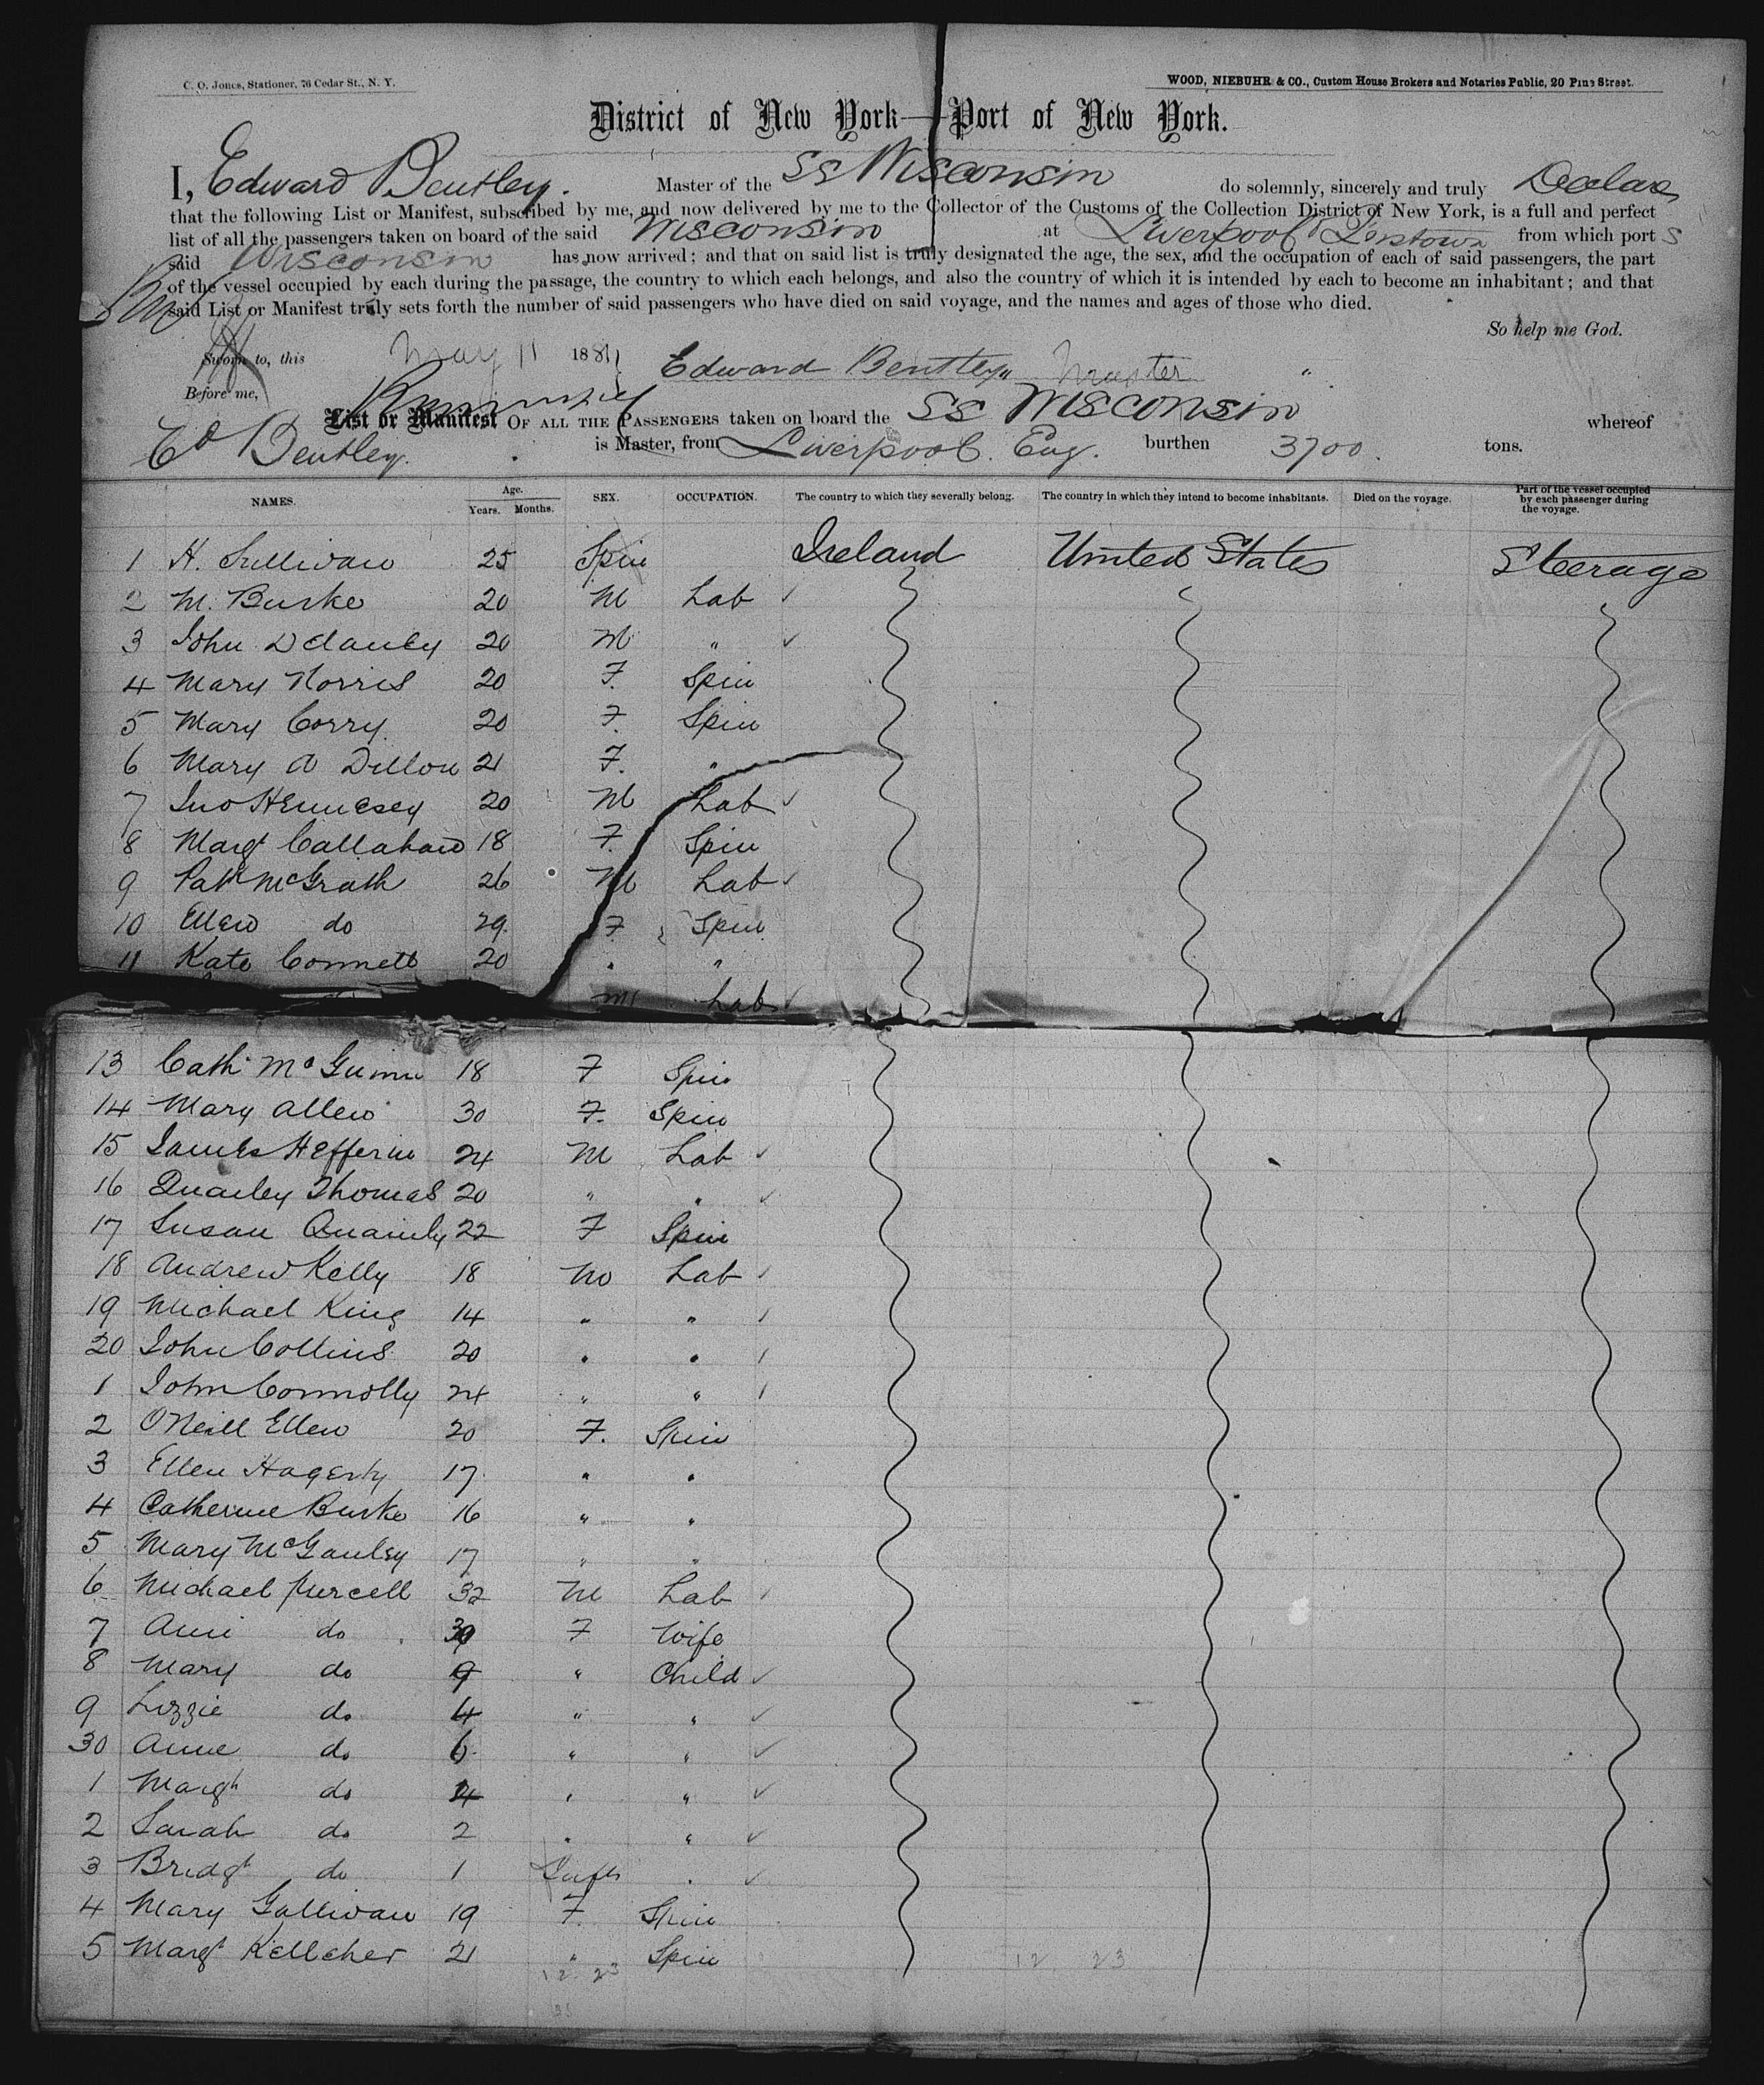 C. O. Jones, Stationer, 76 Cedar St., N. Y.
WOOD, NIEBUHR & CO., Custom House Brokers and Notaries Public, 20 Pine Street.
District of New York—Port of New York.
I, Edward Bentley. Master of the SS Wisconsin do solemnly, sincerely and truly Declare
that the following List or Manifest, subscribed by me, and now delivered by me to the Collector of the Customs of the Collection District of New York, is a full and perfect
list of all the passengers taken on board of the said Wisconsin at Liverpool from which port s
said Wisconsin has now arrived; and that on said list is truly designated the age, the sex, and the occupation of each of said passengers, the part
of the vessel occupied by each during the passage, the country to which each belongs, and also the country of which it is intended by each to become an inhabitant; and that
said List or Manifest truly sets forth the number of said passengers who have died on said voyage, and the names and ages of those who died.
So help me God.
Sworn to, this May 11 1881
Edward Bentley Master "
Before me,
List or Manifest OF ALL THE PASSENGERS taken on board the SS Wisconsin whereof
Ed Bentley. is Master, from Liverpool. Eng. burthen 3700. tons.
NAMES. Age. Years. Months. SEX. OCCUPATION. The country to which they severally belong. The country in which they intend to become inhabitants. Died on the voyage. Part of the vessel occupied by each passenger during the voyage.
1 H. Sullivan 25 Spin Ireland United States Steerage
2 M. Burke 20 M Lab
3 John Delaney 20 M "
4 Mary Norris 20 F. Spin
5 Mary Corry. 20 F. Spin
6 Mary A Dillon 21 F. "
7 Jno Hennesey 20 M Lab
8 Margt Callahan 18 F. Spin
9 Patk McGrath 26 M Lab
10 Ellen do 29. F Spin
11 Kate Connell 20 " "
M Lab
13 Cath McGuinn 18 F Spin
14 Mary Allen 30 F. Spin
15 James Heffern 24 M Lab
16 Quailey Thomas 20 " "
17 Susan 22 F Spin
18 Andrew Kelly 18 M Lab
19 Michael King 14 " "
20 John Collins 20 " "
1 John Connolly 24 " "
2 O'Neill Ellen 20 F. Spin
3 Ellen Hagerty 17. " "
4 Catherine Burke 16 " "
5 Mary McGauley 17 " "
6 Michael Purcell 32 M Lab
7 Ann do 30 F Wife
8 Mary do 9 " Child
9 Lizzie do 4 " "
30 Anne do 6 " "
1 Margt do 4 " "
2 Sarah do 2 " "
3 Bridgt do 1 Infts "
4 Mary Gallivan 19 F. Spin
5 Margt Kelleher 21 " Spin
12. 23 12. 23